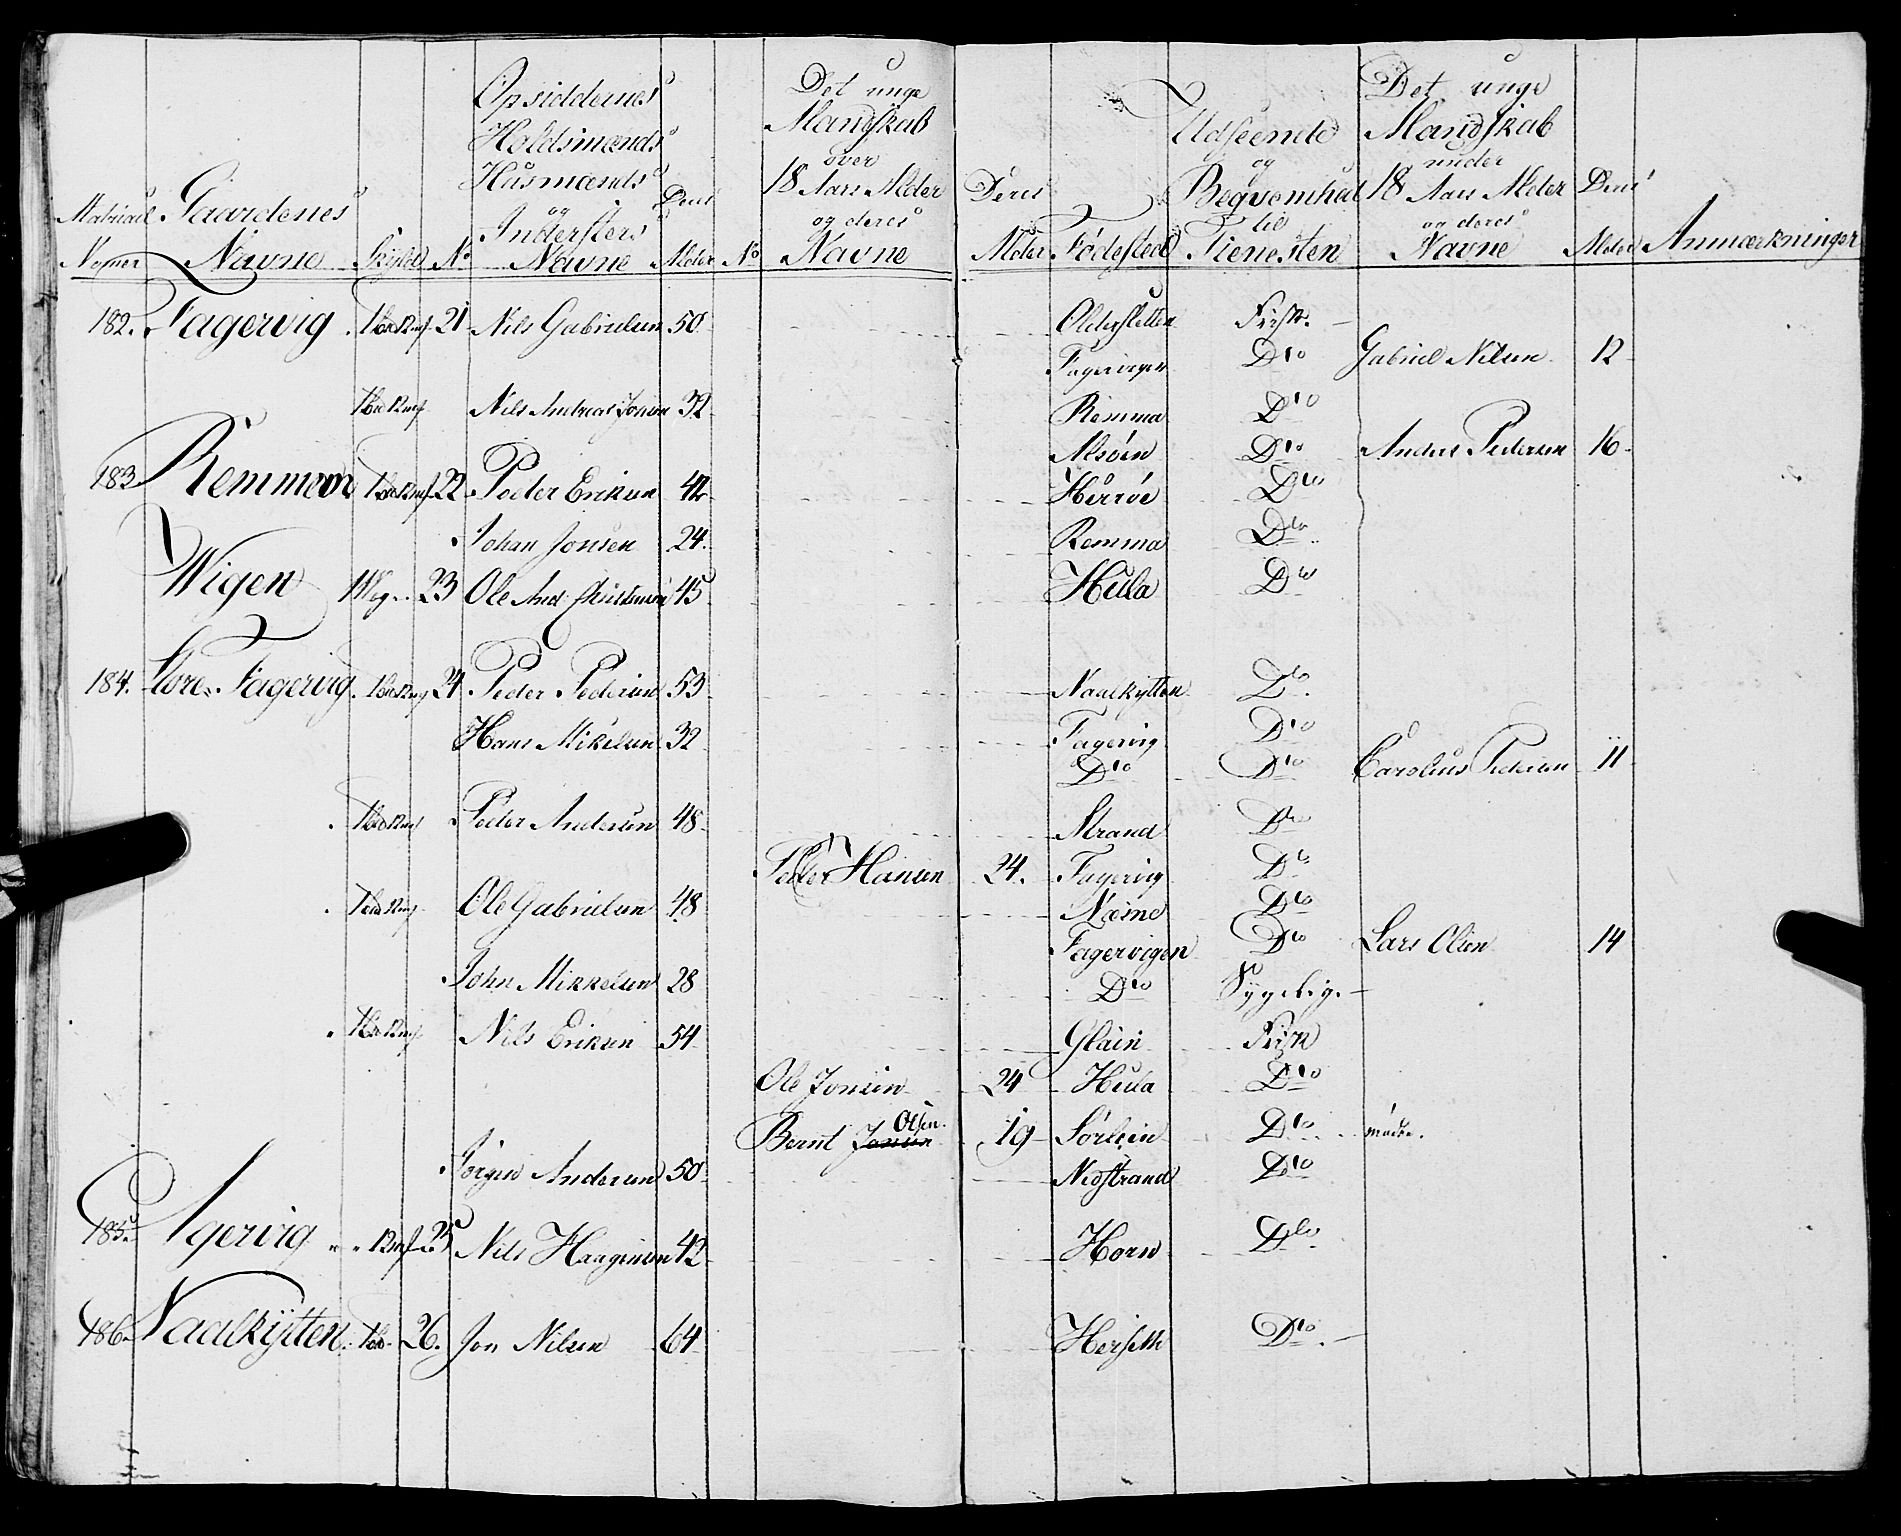 Matricul Nomer | Gaardenes Navne | Skyld | No | Opsiddernes Holdsmænds Husmænds og Inderster's Navne | Deres Alder | No | Det unge Mandskab over 18 Aars Alder og deres Navne | Deres Alder | Fødested | Udseende og Beqvemhed til Tienesten | Det unge Mandskab under 18 Aars Alder og deres Navne | Deres Alder | Anmærkninger
182. Fagervig 21 Nils Gabrielsen 50 Frisk.
Fagervigen Dto Gabriel Nilsen 12
Nils Andreas Jonsen 32 Remma Dto
Alsöen Dto Anders Pedersen 16
183 Remmen 22 Peder Eriksen 42 Herröe Dto
Johan Jonsen 24. Remma Dto
Wigen 1 Wog 23 Ole And: Christensen 45 Hula Dto
184. Store Fagervig 24 Peder Pedersen 53 Naalskytten Dto
Hans Mikelsen 32 Fagervig Dto
Dto Dto Carolius Pedersen 11
Peder Andersen 48 Strand Dto
Peder Hansen 24. Fagervig Dto
Ole Gabrielsen 48 Næsne Dto
Fagervigen Dto Lars Olsen 14
John Mikkelsen 28 Dto Sygelig.
Nils Eriksen 54 Glein Frisk
Ole Jonsen 24 Hula Dto
Olsen.
Bernt Jonsen 19 Sörlein Dto
Jörgen Andersen 50 Nedstrand Dto
185. Agervig 25 Nils Haagensen 42 Horn Dto
186. Naalskÿtten 26. Jon Nilsen 64 Herseth Dto.